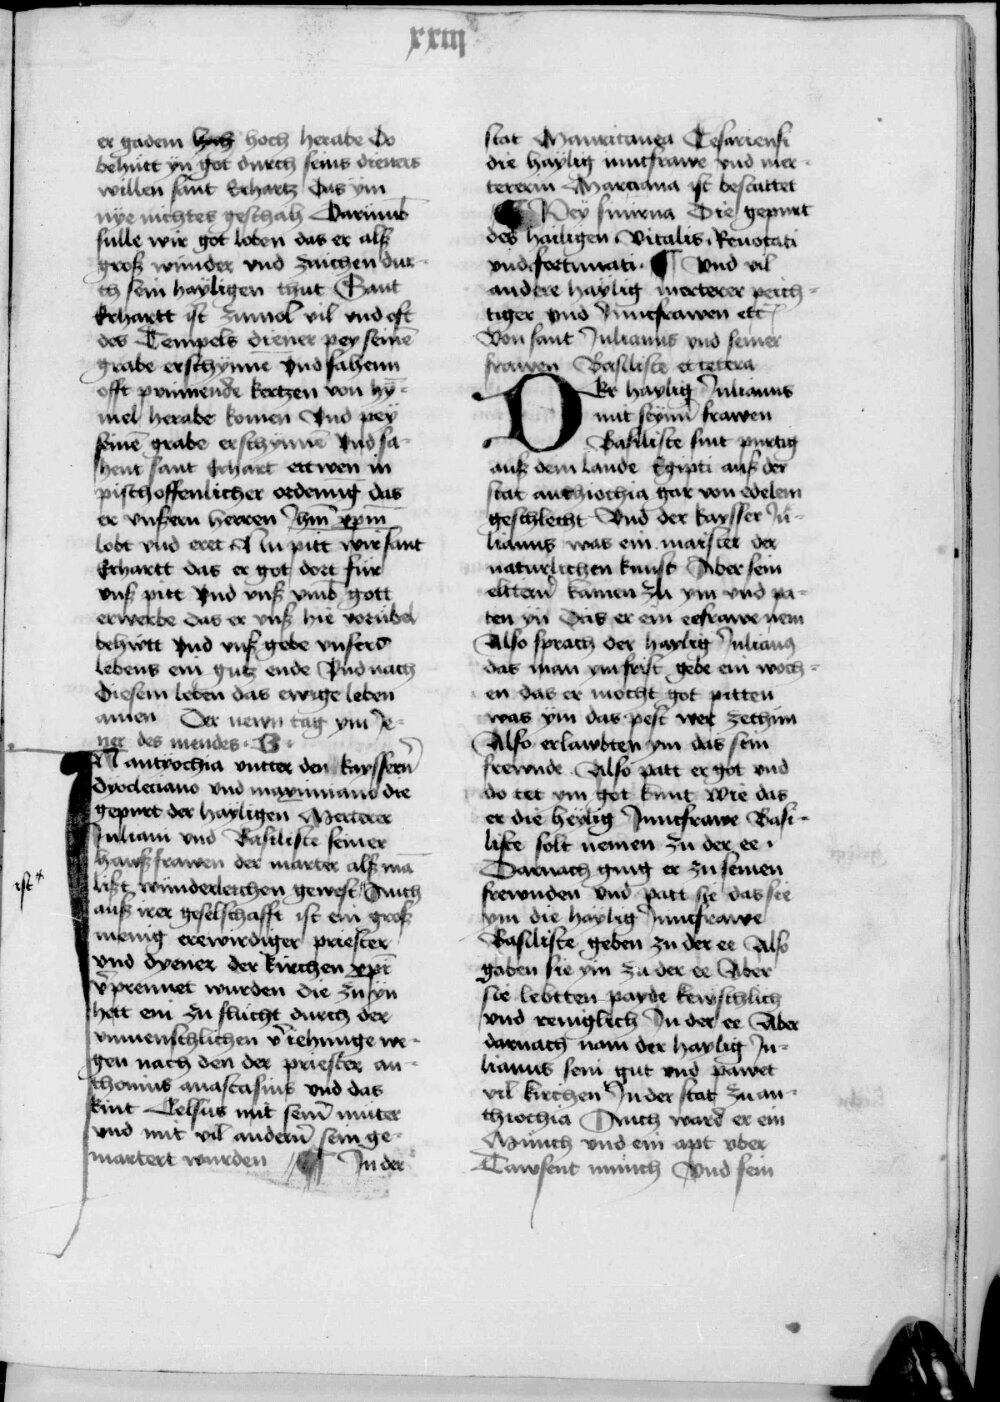 xxiij
er gadem hoch hoch herabe Do
behutt yn got durch seins dieners
willen sant Erhartz das ym
nye nichtes geschah Darumb
sulle wir got loben das er alß
groß wunder vnd zaichen dur-
ch sein hayligen thut Sant
Erhartt ist zumol vil vnd oft
des Tempels diener pey seinē
grabe erschynnē Vnd sahenn
offt prinnende kertzen von hÿ-
mel herabe komen Vnd pey
seinē grabe erschynnē Vnd sa-
hent sant Erhart ettwen in
pischoffenlicher ordenūg das
er vnßern herren Jhm̄ xpm̄
lobt vnd eret Nu pitt wir sant
Erhartt das er got dort für
vnß pitt Vnd vnß vmb gott
erwerbe das er vnß hie vor übel
behütt Vnd vnß gebe vnsers
lebens ein gutz ende Vnd nach
diesem leben das ewige leben
amen Der newn tag ym Je-
ner des mendes · B ·
In antyochia vntter den kayssern̄
dyocleciano vnd maximiano die
gepurt der hayligen Merterer
Juliani vnd Basilisse seiner
haußfrawen der marter alß ma
ist
lißt wunderleichen gewest Auch
auß irer geselschafft ist ein groß
menig erewirdiger priester
vnd dyener der kirchen xpī
v̄prennet wurden die zu yn
hett ein zu flucht durch der
vnmenschlichen v̄iehunge we-
gen nach den der priester an-
thonius anastasius vnd das
kint Celsus mit sein̄ muter
vnd mit vil andern̄ sein ge-
martert wurden ¶ In der
stat Mauritanea Cesariensi
die haylig iunckfrawe vnd mer-
tererin Marciana ist bestattet
¶ Pey smirna Die gepurt
des hailigen · Vitalis · Reuocati
vnd fortunati · ¶ Vnd vil
andere haylig merterer peich-
tiger vnd Junckfrawen etc̄
Von sant Julianus vnd seiner
frawen Basilisse et cetera
DEr haylig Julianus
mit seyn̄ frawen
Basilisse sint purtig
auß dem lande Egipti auß der
stat anthiochia gar von edelem
geschlecht Vnd der kaysser Ju-
lianus was ein maister der
naturlichen kunst Aber sein
elttern̄ kamen zu ym vnd pa-
ten yn Das er ein eefrawe nem
Also sprach der haylig Julianus
das man ym frist gebe ein woch-
en das er mocht got pitten
was ym das pest wer zethun
Also erlawbten ym das sein
frewnde Also patt er got vnd
do tet ym got kunt Wie das
er die heylig Junckfrawe Basi-
lisse solt nemen zu der ee ·
Darnach ging er zu seinen
frewnden vnd patt sie das sie
ym die haylig Junckfrawe
Basilisse geben zu der ee Also
gaben sie ym zu der ee Aber
sie lebtten payde kewschlich
vnd reniglich In der ee Aber
darnach nam der haylig Ju-
lianus sein gut vnd pawet
vil kirchen In der stat zu an-
thiochia Auch ward er ein
Münch vnd ein apt vber
Tawsent münch Vnd sein